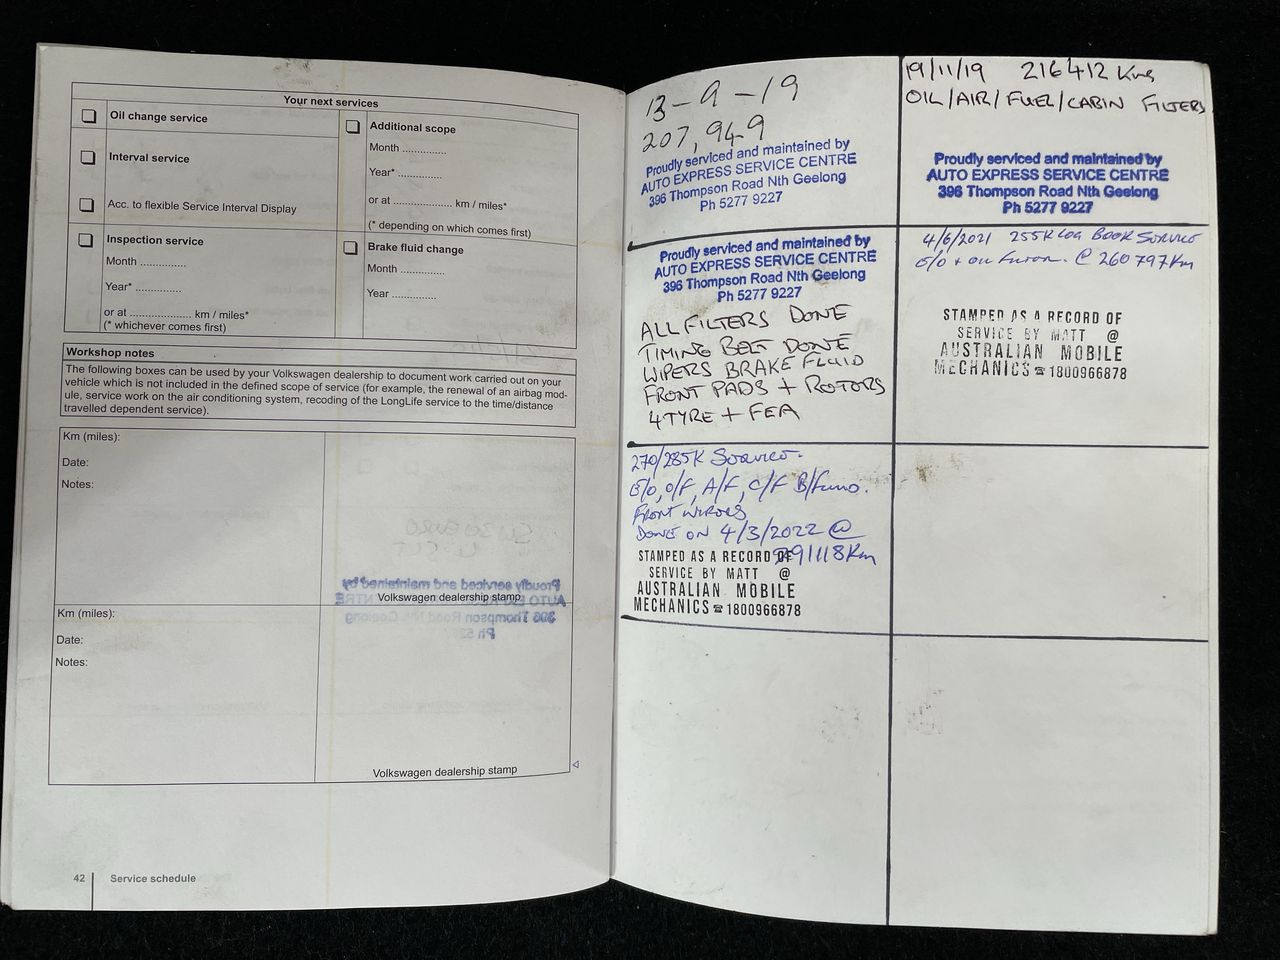 Your next services
Oil change service
Interval service
Acc. to flexible Service Interval Display
Additional scope
Month ..............
Year* .............
or at .................... km / miles*
(* depending on which comes first)
Inspection service
Month ..............
Year* ..............
or at ..................... km / miles*
(* whichever comes first)
Brake fluid change
Month ..............
Year ..............
Workshop notes
The following boxes can be used by your Volkswagen dealership to document work carried out on your
vehicle which is not included in the defined scope of service (for example, the renewal of an airbag mod-
ule, service work on the air conditioning system, recoding of the LongLife service to the time/distance
travelled dependent service).
Km (miles):
Date:
Notes:
Volkswagen dealership stamp
Km (miles):
Date:
Notes:
Volkswagen dealership stamp
42 Service schedule
13-9-19
207,949
Proudly serviced and maintained by
AUTO EXPRESS SERVICE CENTRE
396 Thompson Road Nth Geelong
Ph 5277 9227
19/11/19 216412 Kms
OIL/AIR/FUEL/CABIN FILTERS
Proudly serviced and maintained by
AUTO EXPRESS SERVICE CENTRE
396 Thompson Road Nth Geelong
Ph 5277 9227
Proudly serviced and maintained by
AUTO EXPRESS SERVICE CENTRE
396 Thompson Road Nth Geelong
Ph 5277 9227
ALL FILTERS DONE
TIMING BELT DONE
WIPERS BRAKE FLUID
FRONT PADS + ROTORS
4 TYRE + FEA
4/6/2021 255K LOG BOOK SERVICE
E/O + OIL FILTER. @ 260797Km
STAMPED AS A RECORD OF
SERVICE BY MATT @
AUSTRALIAN MOBILE
MECHANICS ☎ 1800966878
270/285K SERVICE.
E/O, O/F, A/F, C/F B/FLUID.
FRONT WIPERS
DONE ON 4/3/2022 @
291118Km
STAMPED AS A RECORD OF
SERVICE BY MATT @
AUSTRALIAN MOBILE
MECHANICS ☎ 1800966878